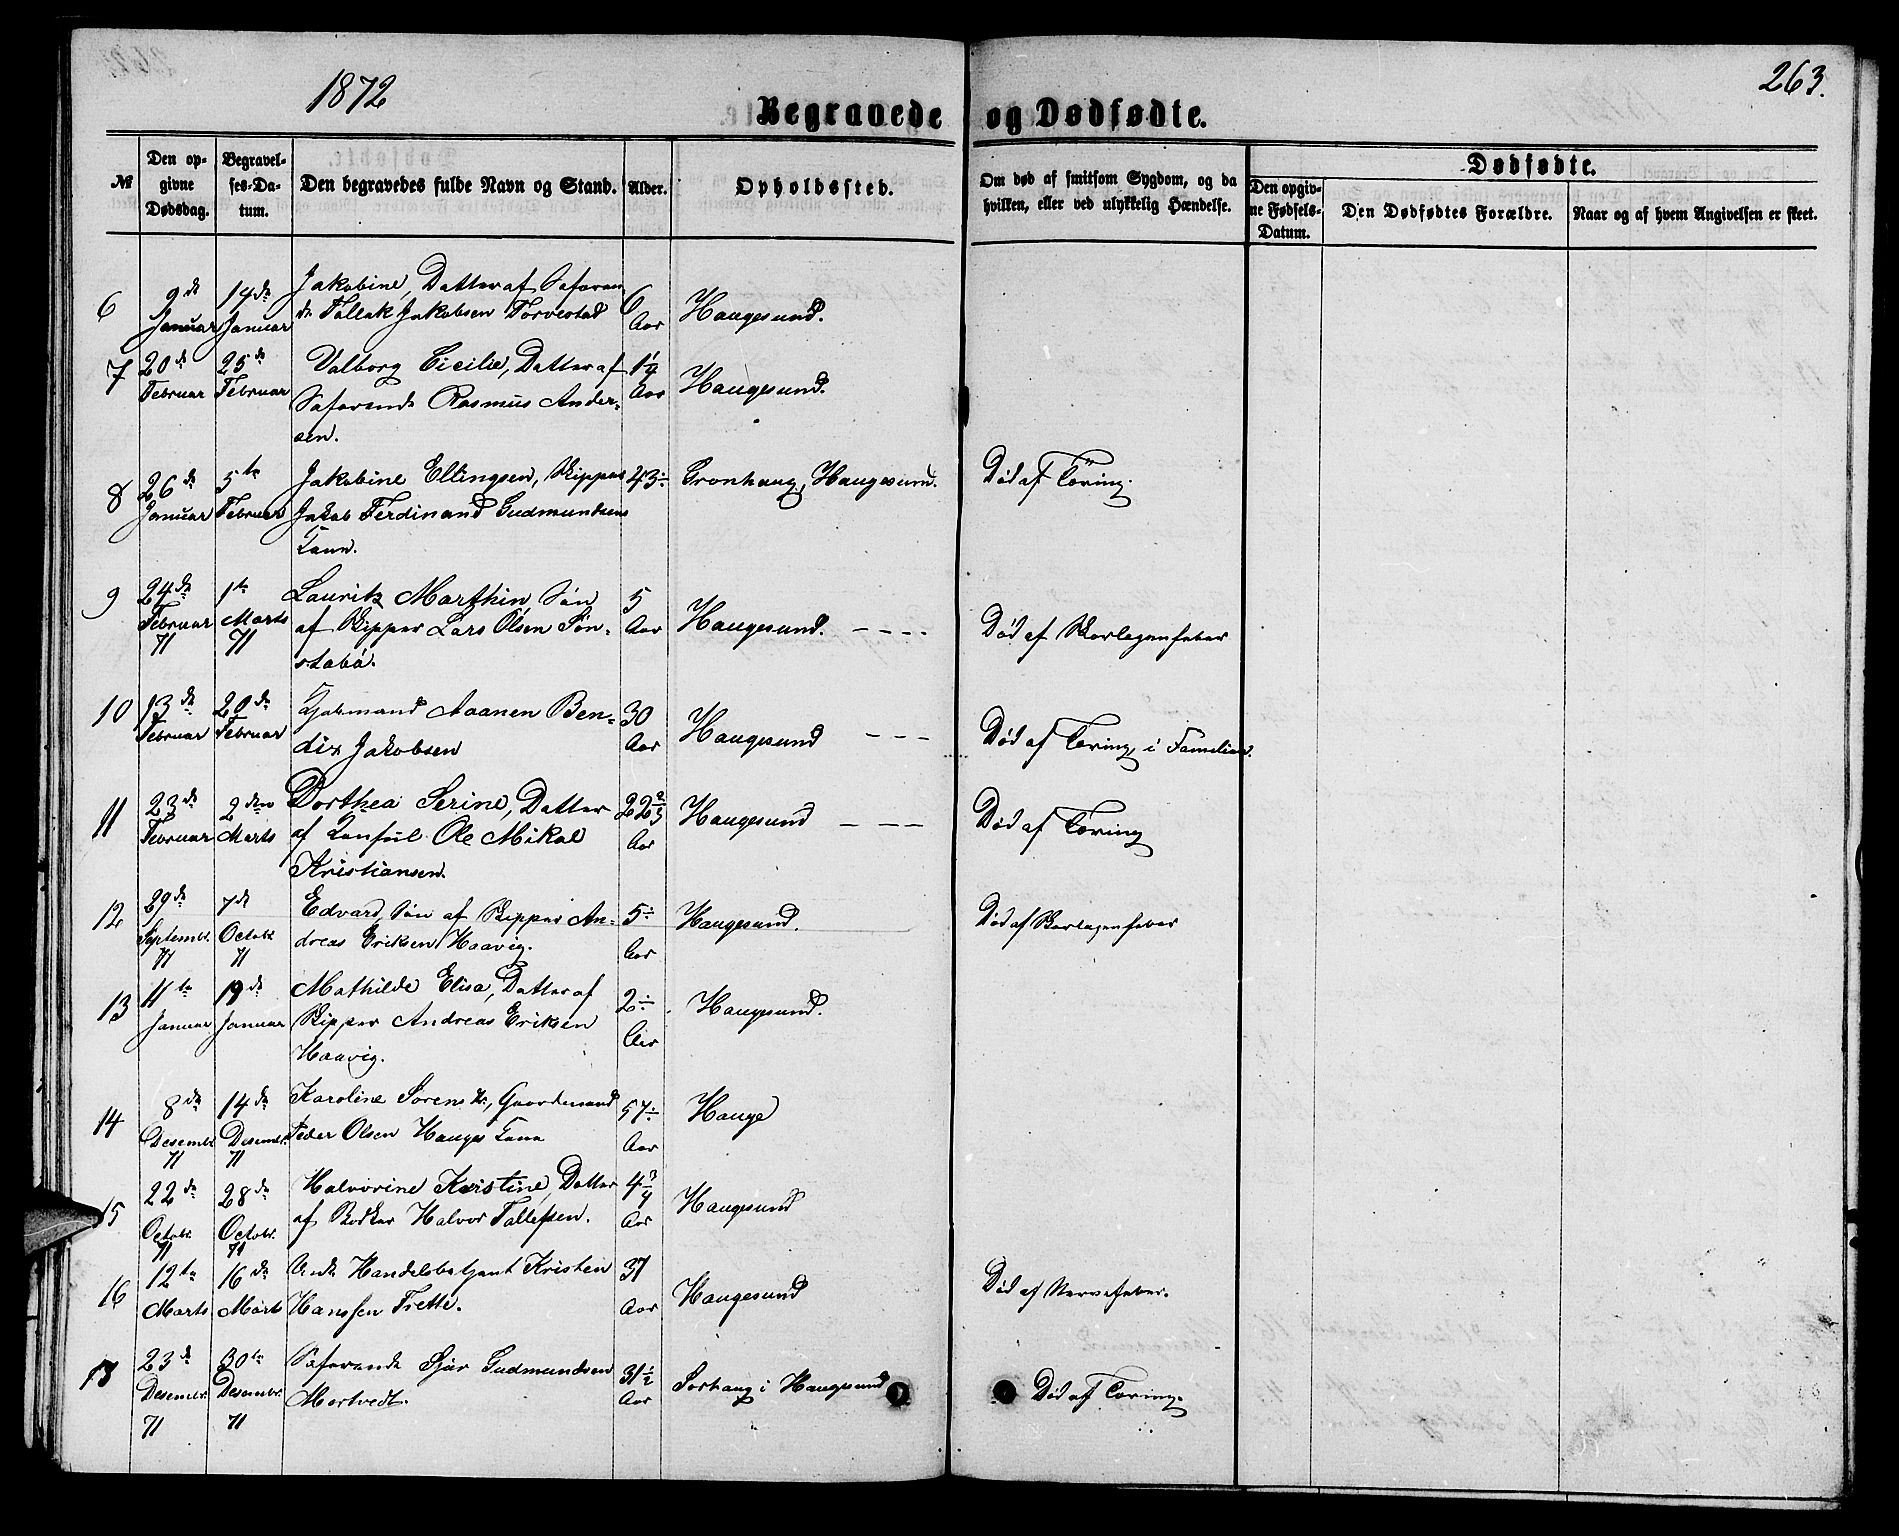 1872
263.
Begravede og Dødfødte.
№
Den opgivne Dødsdag.
Begravelses-Datum.
Den begravedes fulde Navn og Stand.
Alder.
Opholdssted.
Om død af smitsom Sygdom, og da hvilken, eller ved ulykkelig Hændelse.
Dødfødte.
Den opgivne Fødsels-Datum.
Den Dødfødtes Forældre.
Naar og af hvem Angivelsen er skeet.
6 9de Januar 14de Januar Jakobine, Datter af Søfaren-
de Tallak Jakobsen Torvestad 6 Aar Haugesund.
7 20de Februar 25de Februar Valborg Cicilie, Datter af
Søfarende Rasmus Ander-
sen. 1¼ Aar Haugesund.
8 26de Januar 5te Februar Jakobine Ellingsen, Skipper
Jakob Ferdinand Gudmundsens
Kone. 43 Grønhaug, Haugesund. Død af Tæring.
9 24de Februar 71 1te Marts 71 Lauritz Marthin, Søn
af Skipper Lars Olsen Søn-
stabø. 5 Aar Haugesund. - - - - Død af Skarlagensfeber
10 13de Februar 20de Februar Aanen Ben-
dix Jakobsen 30 Aar Haugesund - - - Død af Tæring, i Familien.
11 23de Februar 2den Marts Dorthea Serine, Datter
af Ole Mikal
Kristiansen. 22 Aar Haugesund - - - Død af Tæring
12 29de Septembr. 71 7de Octobr. 71 Edvard, Søn af Skipper An-
dreas Eriksen Haavig. 5 Aar Haugesund. Død af Skarlagensfeber
13 11te Januar 19de Januar Mathilde Elisa, Datter af
Skipper Andreas Eriksen
Haavig. 2 Aar Haugesund.
14 8de Desembr. 71 14de Desembr. 71 Karoline Sørens Dr., Gaardmand
Peder Olsen Hauges Kone 57 Aar Hauge
15 22de Octobr. 71 28de Octobr. 71 Halvorine Kristine, Datter
af Bødker Halvor Tallefsen. 4¾ Aar Haugesund
16 12te Marts 16de Marts Handelsbetjent Kristen
Hanssen Trette. 37 Aar Haugesund Død af Nervefeber.
17 23de Desembr. 71 30te Desembr. 71 Søfarende Sjur Gudmundsen
Mortvedt. 31½ Aar Sørhaug i Haugesund Død af Tæring.